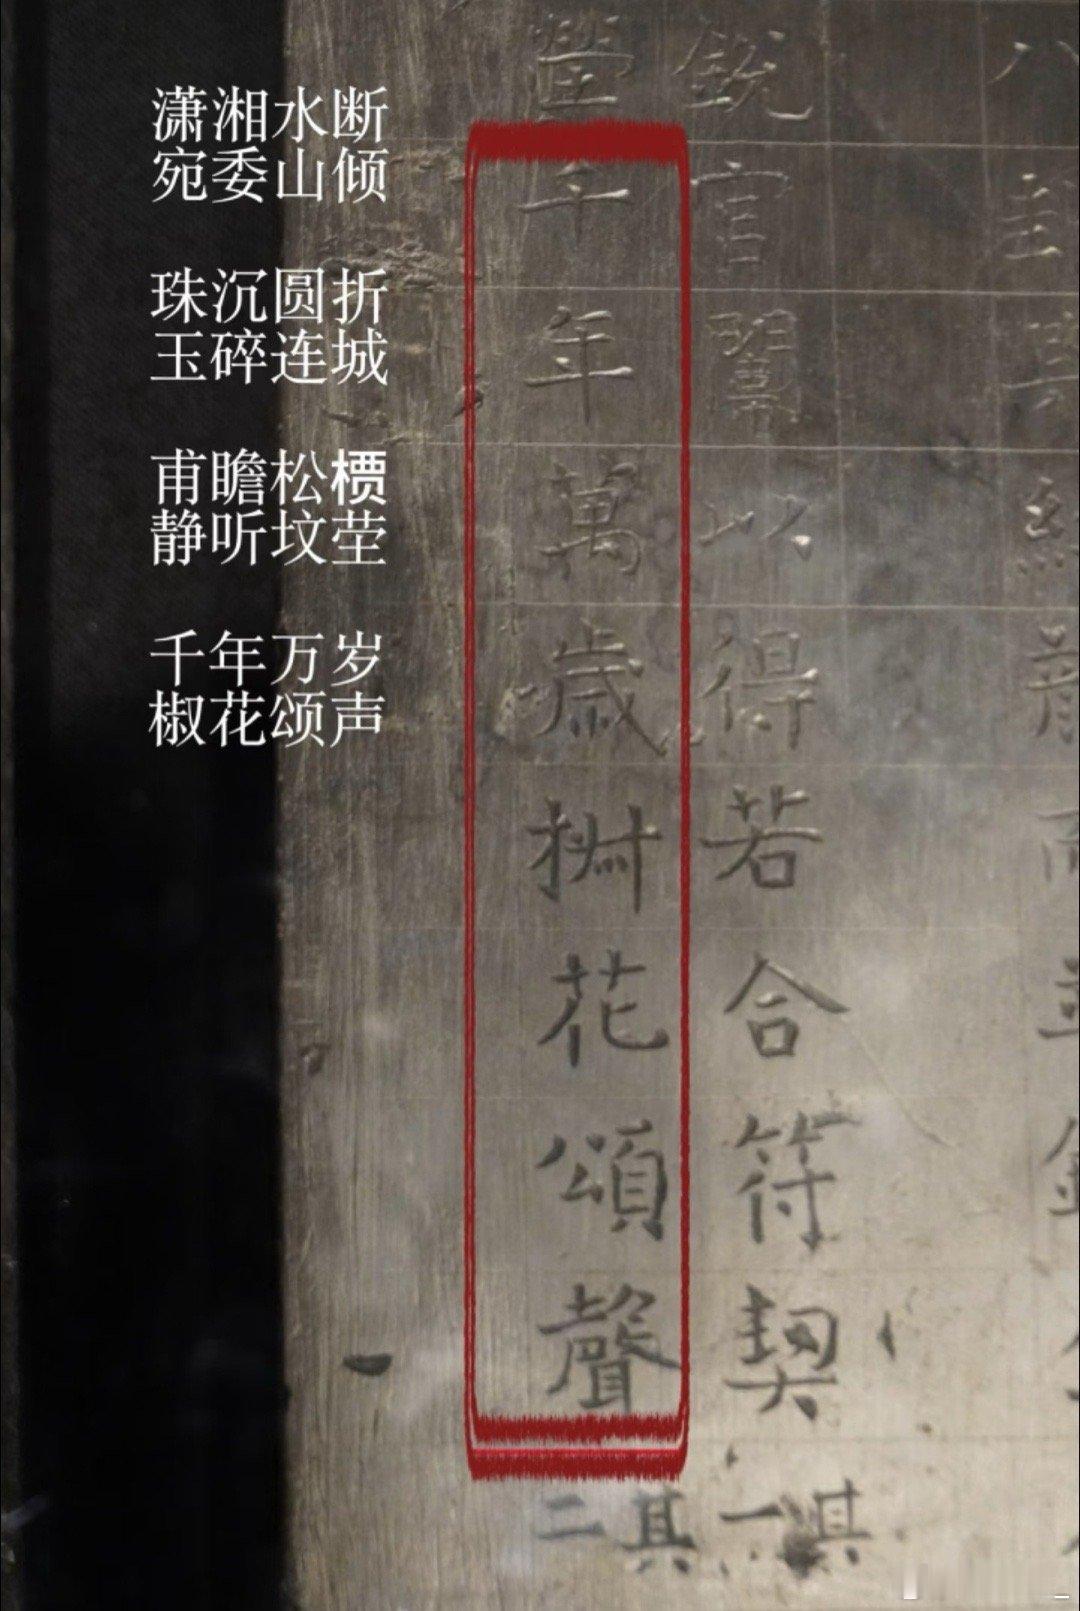 潇湘水断
宛委山倾
珠沉圆折
玉碎连城
甫瞻松槚
静听坟茔
千年万岁
椒花颂声
銳官闈以得若合符契其一
塋千年萬歲椒花頌聲其二